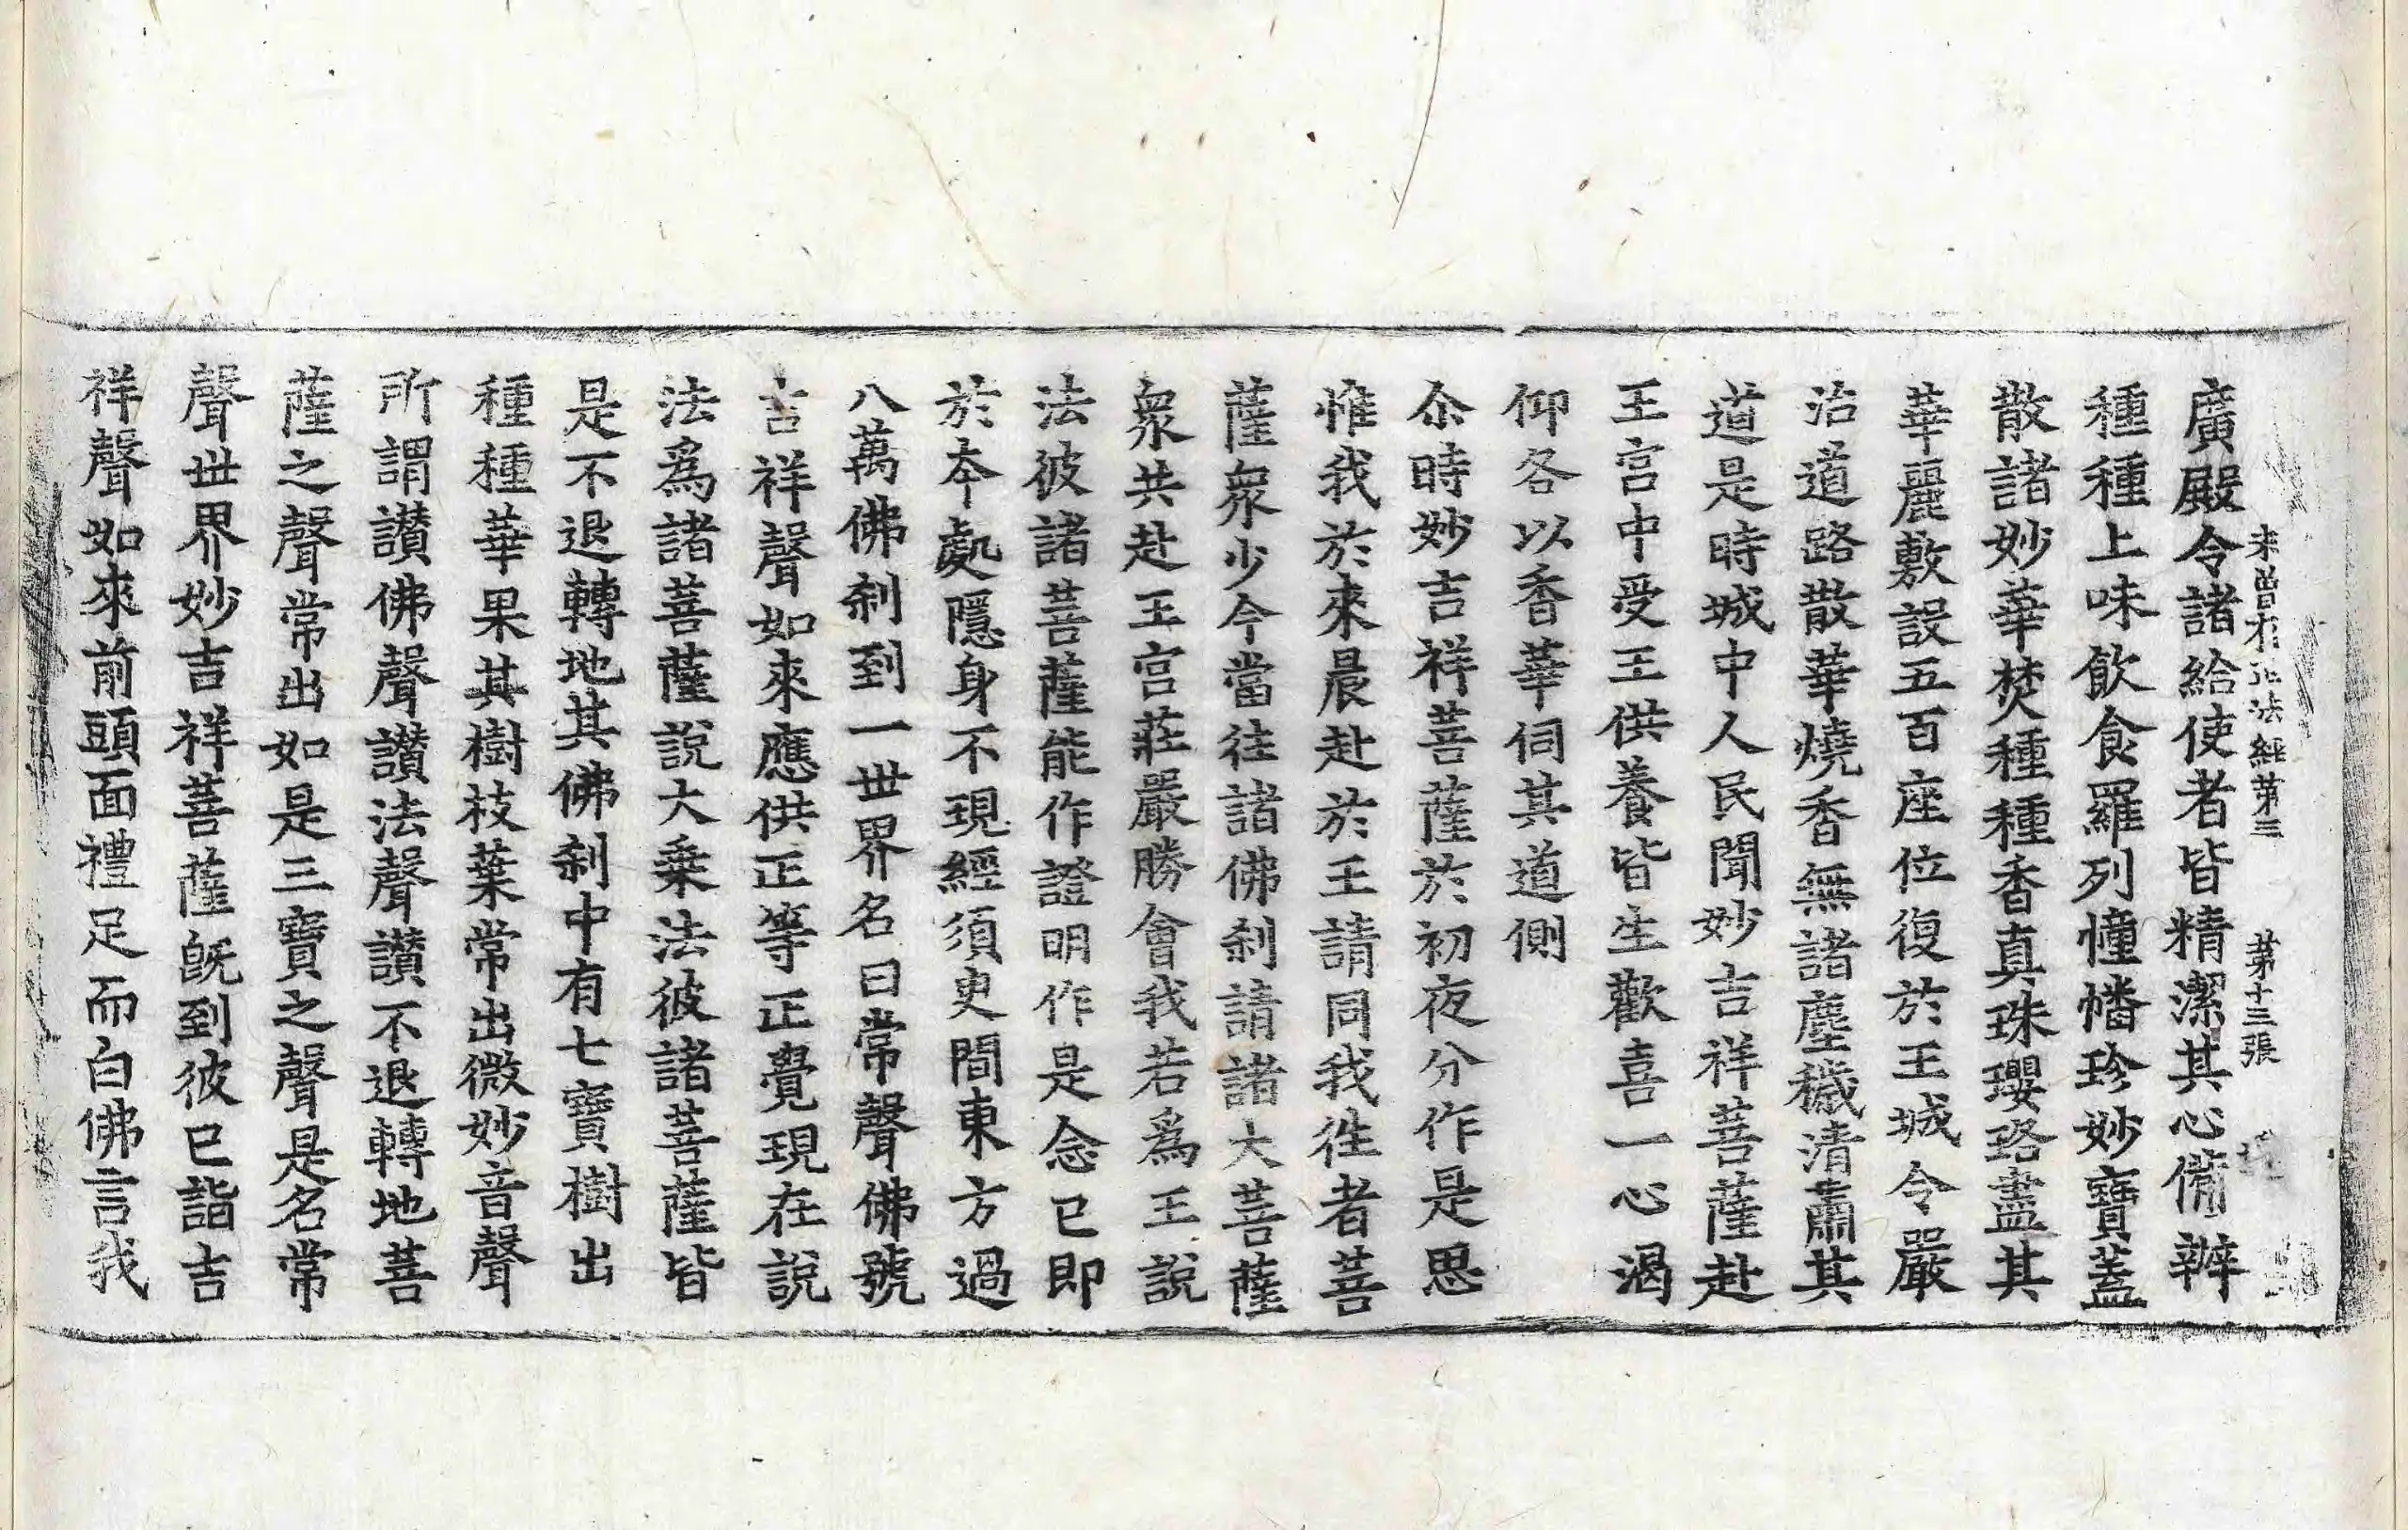 未曾有正法經第三 第十三張
廣殿令諸給使者皆精潔其心備辦
種種上味飲食羅列幢幡珍妙寶蓋
散諸妙華焚種種香真珠瓔珞盡其
華麗敷設五百座位復於王城令嚴
治道路散華燒香無諸塵穢清肅其
道是時城中人民聞妙吉祥菩薩赴
王宮中受王供養皆生歡喜一心渴
仰各以香華伺其道側
尒時妙吉祥菩薩於初夜分作是思
惟我於來晨赴於王請同我徃者菩
薩衆少今當徃諸佛刹請諸大菩薩
衆共赴王宮莊嚴勝會我若爲王說
法彼諸菩薩能作證明作是念已即
於本處隱身不現經須臾間東方過
八萬佛刹到一世界名曰常聲佛號
吉祥聲如來應供正等正覺現在說
法爲諸菩薩說大乘法彼諸菩薩皆
是不退轉地其佛刹中有七寶樹出
種種華果其樹枝葉常出微妙音聲
所謂讚佛聲讚法聲讚不退轉地菩
薩之聲常出如是三寶之聲是名常
聲世界妙吉祥菩薩旣到彼已詣吉
祥聲如來前頭面禮足而白佛言我